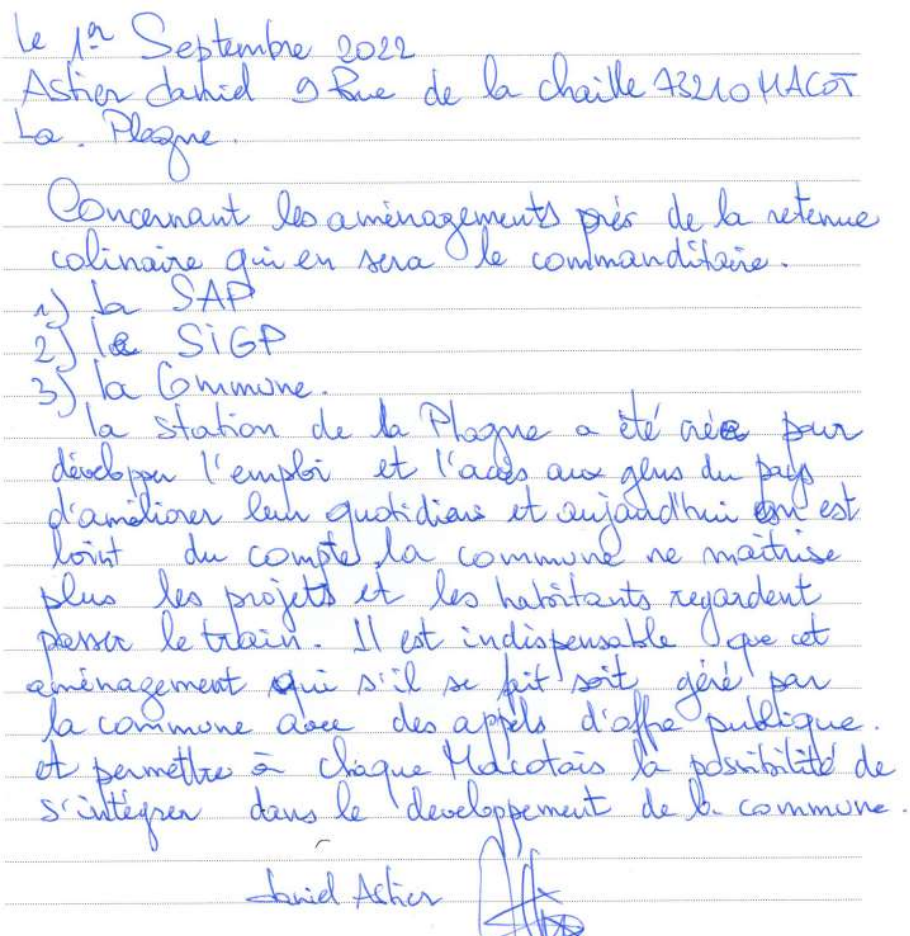 le 1er Septembre 2022
Astier daniel 9 Rue de la chaille 73210 MACOT
La. Plagne.
Concernant les aménagements près de la retenue
colinaire qui en sera le commanditaire.
1) la SAP
2) le SiGP
3) la Commune.
la station de la Plagne a été crée pour
développer l'emploi et l'accès aux gens du pays
d'améliorer leur quotidiens et aujourd'hui on est
loint du compte, la commune ne maîtrise
plus les projets et les habitants regardent
passer le train. Il est indispensable que cet
aménagement qui s'il se fait soit géré par
la commune avec des appels d'offre publique.
et permettre à chaque Macotais la possibilité de
s'intégrer dans le developpement de la commune.
daniel Astier